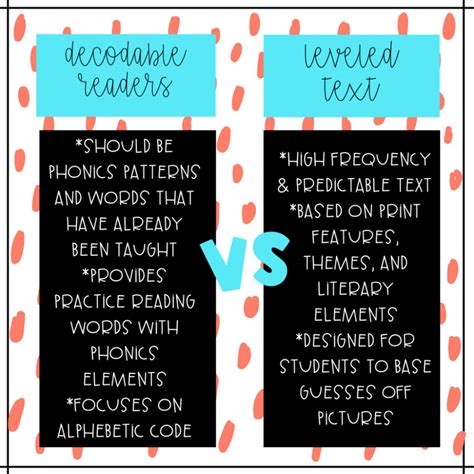 decodable
readers
*SHOULD BE
PHONICS PATTERNS
AND WORDS THAT
HAVE ALREADY
BEEN TAUGHT
*PROVIDES
PRACTICE READING
WORDS WITH
PHONICS
ELEMENTS
*FOCUSES ON
ALPHEBETIC CODE
VS
leveled
text
*HIGH FREQUENCY
& PREDICTABLE TEXT
*BASED ON PRINT
FEATURES,
THEMES, AND
LITERARY
ELEMENTS
*DESIGNED FOR
STUDENTS TO BASE
GUESSES OFF
PICTURES